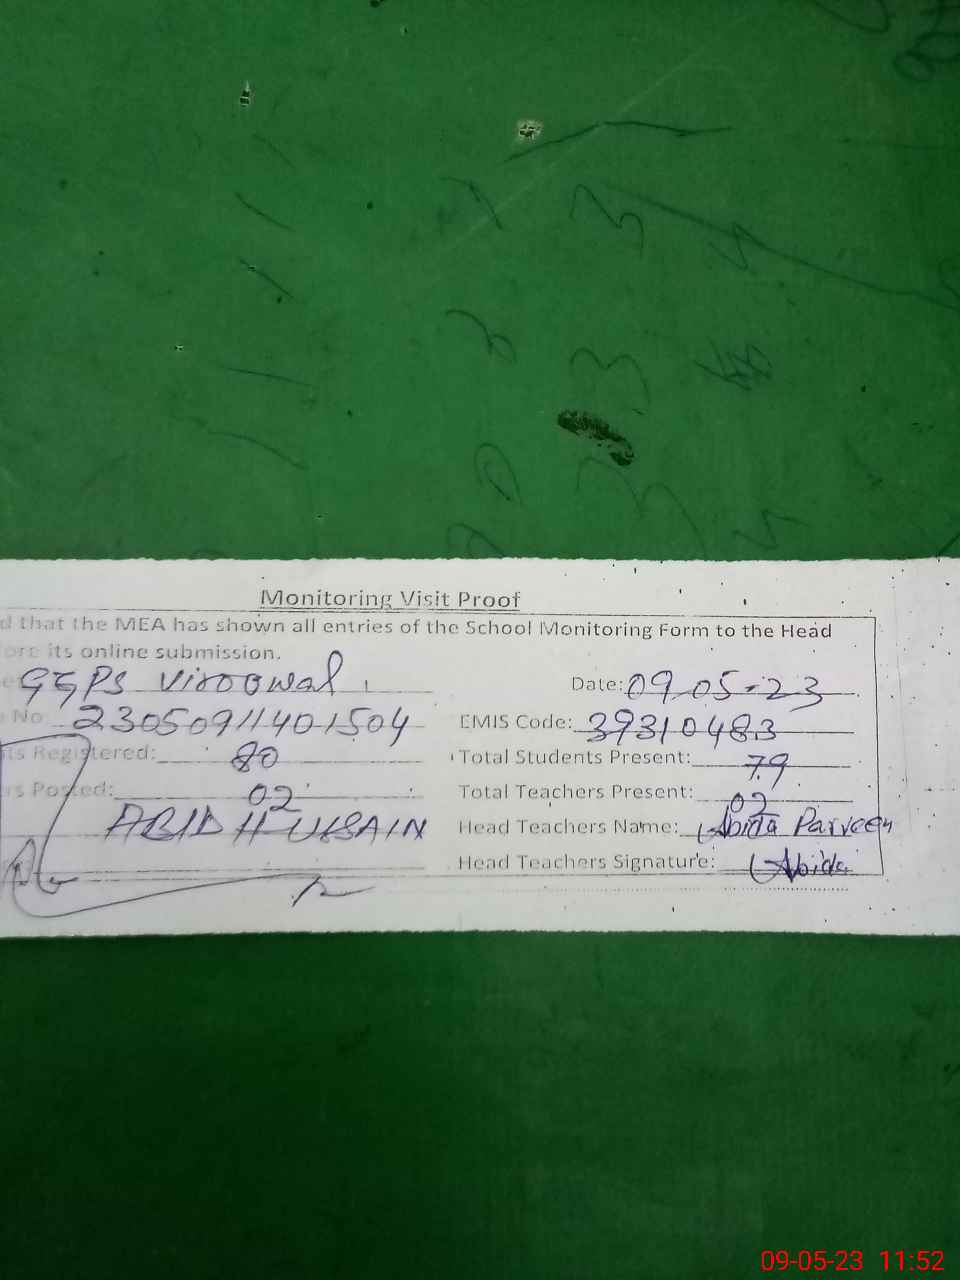 Monitoring Visit Proof
d that the MEA has shown all entries of the School Monitoring Form to the Head
ore its online submission.
GGPS Viroowal Date: 09-05-23
No 23050911401504 EMIS Code: 39310483
ts Registered: 80 Total Students Present: 79
rs Posted: 02 Total Teachers Present: 02
ABID HUSSAIN Head Teachers Name: Abida Parveen
Head Teachers Signature: Abida
09-05-23 11:52